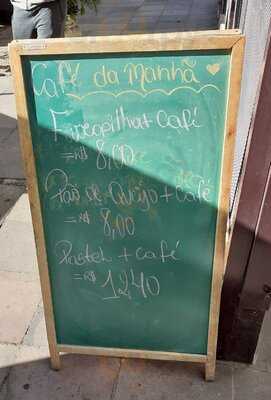 Café da Manhã
Empadilha + Café
= R$ 8,00
Pão de Queijo + Café
= R$ 8,00
Pastel + Café
= R$ 12,40